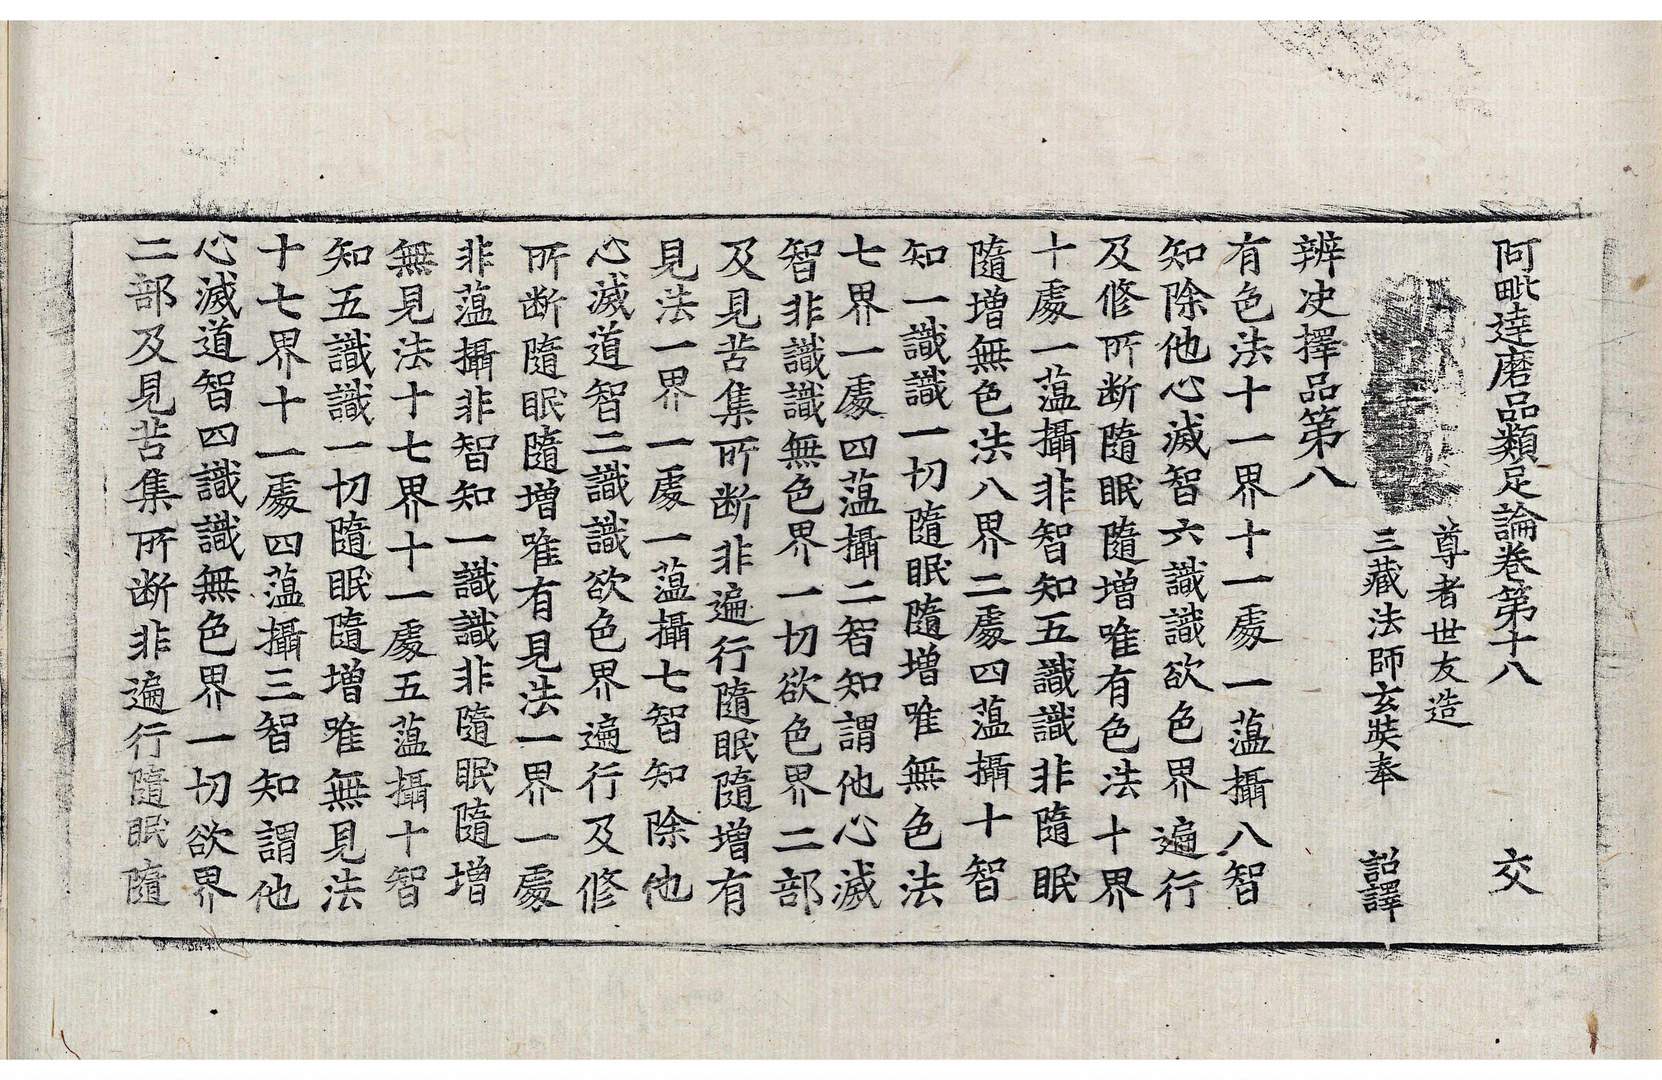 阿毗達磨品類足論卷第十八　交
尊者世友造
三藏法師玄奘奉　詔譯
辨决擇品第八
有色法十一界十一處一蘊攝八智
知除他心滅智六識識欲色界遍行
及修所断隨眠隨增唯有色法十界
十處一蘊攝非智知五識識非隨眠
隨增無色法八界二處四蘊攝十智
知一識識一切隨眠隨增唯無色法
七界一處四蘊攝二智知謂他心滅
智非識識無色界一切欲色界二部
及見苦集所断非遍行隨眠隨增有
見法一界一處一蘊攝七智知除他
心滅道智二識識欲色界遍行及修
所断隨眠隨增唯有見法一界一處
非蘊攝非智知一識識非隨眠隨增
無見法十七界十一處五蘊攝十智
知五識識一切隨眠隨增唯無見法
十七界十一處四蘊攝三智知謂他
心滅道智四識識無色界一切欲界
二部及見苦集所断非遍行隨眠隨